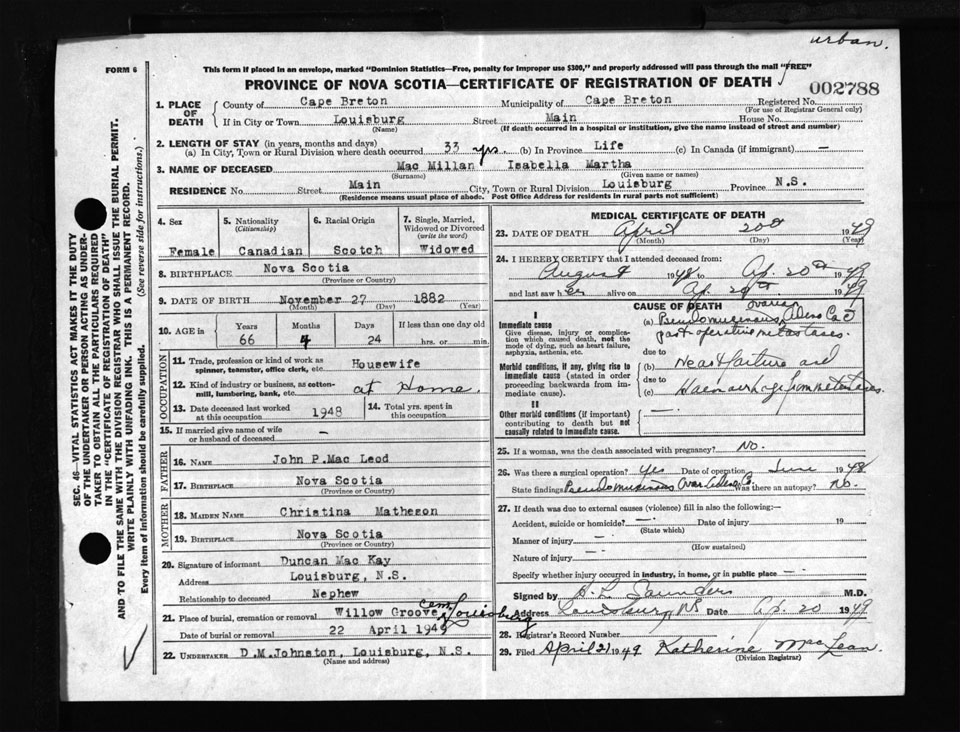 urban.
FORM 6
This form if placed in an envelope, marked "Dominion Statistics—Free, penalty for improper use $300," and properly addressed will pass through the mail "FREE"
PROVINCE OF NOVA SCOTIA—CERTIFICATE OF REGISTRATION OF DEATH
002788
1. PLACE OF DEATH
County of Cape Breton Municipality of Cape Breton Registered No.
(For use of Registrar General only)
If in City or Town Louisburg Street Main House No.
(Name) (If death occurred in a hospital or institution, give the name instead of street and number)
2. LENGTH OF STAY (in years, months and days)
(a) In City, Town or Rural Division where death occurred 33 yrs. (b) In Province Life (c) In Canada (if immigrant) —
3. NAME OF DECEASED Mac Millan Isabella Martha
(Surname) (Given name or names)
RESIDENCE No. Street Main City, Town or Rural Division Louisburg Province N.S.
(Residence means usual place of abode. Post Office Address for residents in rural parts not sufficient)
4. Sex 5. Nationality (Citizenship) 6. Racial Origin 7. Single, Married, Widowed or Divorced (write the word)
Female Canadian Scotch Widowed
8. BIRTHPLACE Nova Scotia
(Province or Country)
9. DATE OF BIRTH November 27 1882
(Month) (Day) (Year)
10. AGE in Years Months Days If less than one day old
66 4 24 hrs. or min.
OCCUPATION
11. Trade, profession or kind of work as spinner, teamster, office clerk, etc. Housewife
12. Kind of industry or business, as cotton-mill, lumbering, bank, etc. at Home.
13. Date deceased last worked at this occupation 1948 14. Total yrs. spent in this occupation
15. If married give name of wife or husband of deceased –
FATHER
16. NAME John P. Mac Leod
17. BIRTHPLACE Nova Scotia
(Province or Country)
MOTHER
18. MAIDEN NAME Christina Matheson
19. BIRTHPLACE Nova Scotia
(Province or Country)
20. Signature of informant Duncan Mac Kay
Address Louisburg, N.S.
Relationship to deceased Nephew
21. Place of burial, cremation or removal Willow Groove Cem. Louisburg
Date of burial or removal 22 April 1949
22. UNDERTAKER D.M.Johnston, Louisburg, N.S.
(Name and address)
MEDICAL CERTIFICATE OF DEATH
23. DATE OF DEATH April 20th 1949
(Month) (Day) (Year)
24. I HEREBY CERTIFY that I attended deceased from:
August 1948 to Ap. 20th 1949
and last saw her alive on Ap. 20th 1949
CAUSE OF DEATH
I
Immediate cause
Give disease, injury or complication which caused death, not the mode of dying, such as heart failure, asphyxia, asthenia, etc.
(a) Pseudomucinous ovarian Adeno Ca c̄
post operative metastases.
due to
Morbid conditions, if any, giving rise to immediate cause (stated in order proceeding backwards from immediate cause).
(b) Heart failure and
due to
(c) Haemorrhage from metastases
II
Other morbid conditions (if important) contributing to death but not causally related to immediate cause. —
25. If a woman, was the death associated with pregnancy? No.
26. Was there a surgical operation? Yes Date of operation June 1948
State findings Pseudomucinous Ovar. Adeno C. Was there an autopsy? No.
27. If death was due to external causes (violence) fill in also the following:—
Accident, suicide or homicide? — Date of injury 19
(State which)
Manner of injury —
(How sustained)
Nature of injury —
Specify whether injury occurred in industry, in home, or in public place —
Signed by H. L. Saunders M.D.
Address Louisburg NS Date Ap. 20 1949
28. Registrar's Record Number
29. Filed April 21 1949 Katherine MacLean.
(Division Registrar)
SEC. 46—VITAL STATISTICS ACT MAKES IT THE DUTY
OF THE UNDERTAKER OR PERSON ACTING AS UNDER-
TAKER TO OBTAIN ALL THE PARTICULARS REQUIRED
IN THE "CERTIFICATE OF REGISTRATION OF DEATH"
AND TO FILE THE SAME WITH THE DIVISION REGISTRAR WHO SHALL ISSUE THE BURIAL PERMIT.
WRITE PLAINLY WITH UNFADING INK. THIS IS A PERMANENT RECORD.
Every item of information should be carefully supplied. (See reverse side for instructions.)